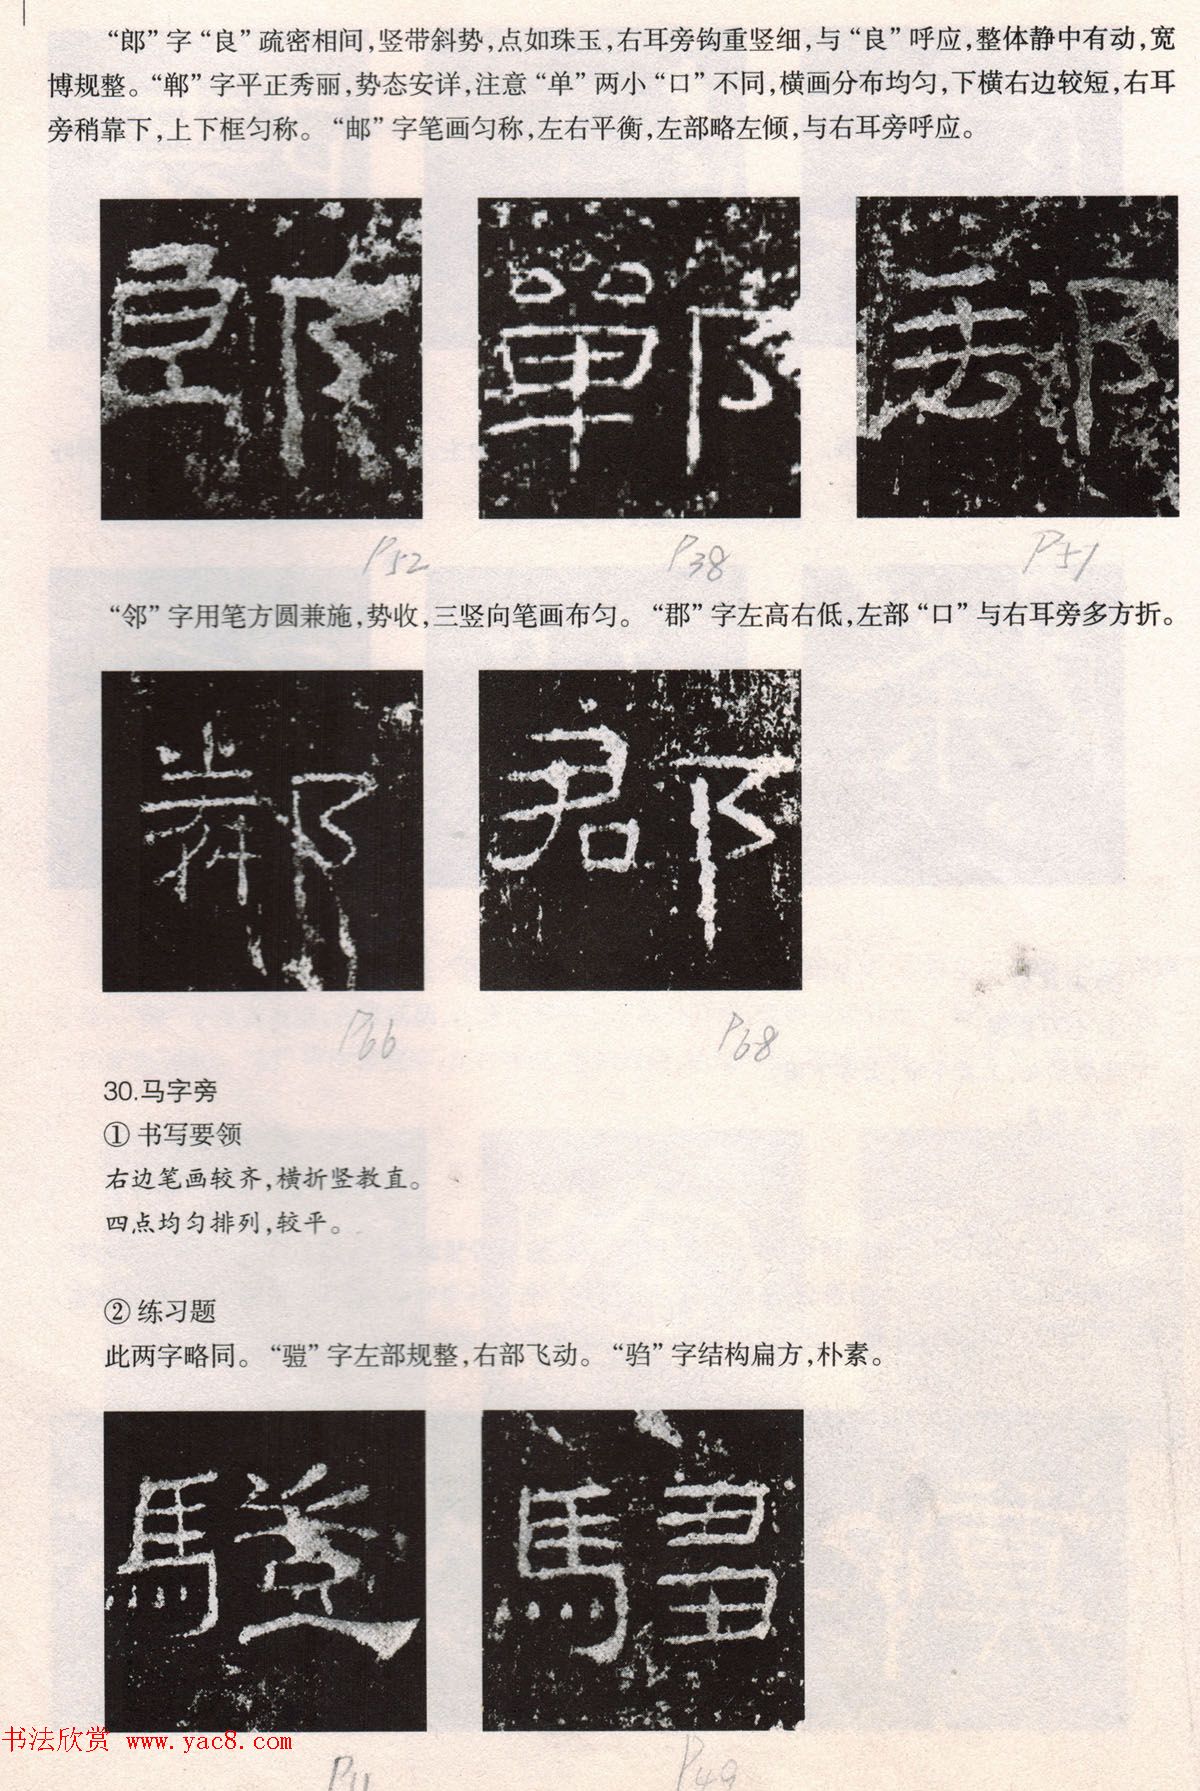 “郎”字“良”疏密相间,竖带斜势,点如珠玉,右耳旁钩重竖细,与“良”呼应,整体静中有动,宽
博规整。“郸”字平正秀丽,势态安详,注意“单”两小“口”不同,横画分布均匀,下横右边较短,右耳
旁稍靠下,上下框匀称。“邮”字笔画匀称,左右平衡,左部略左倾,与右耳旁呼应。
郎 鄲
P52 P38 P51
“邻”字用笔方圆兼施,势收,三竖向笔画布匀。“郡”字左高右低,左部“口”与右耳旁多方折。
鄰 郡
P66 P68
30.马字旁
① 书写要领
右边笔画较齐,横折竖教直。
四点均匀排列,较平。
② 练习题
此两字略同。“骥”字左部规整,右部飞动。“驺”字结构扁方,朴素。
书法欣赏 www.yac8.com
P11 P49